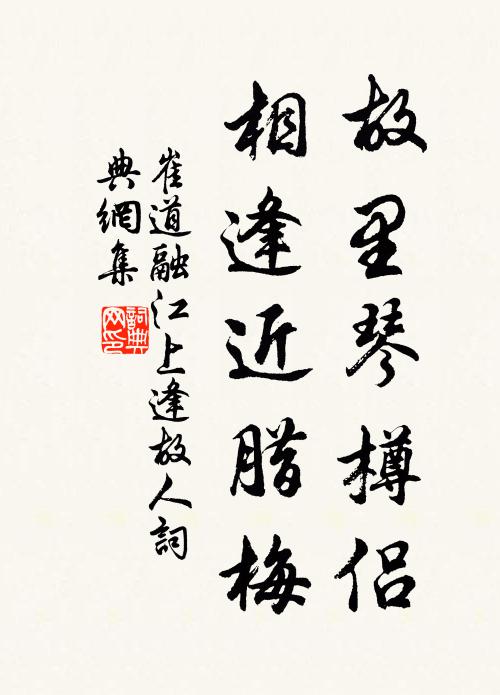 故里琴樽侶
相逢近腊梅
崔道融江上逢故人詞
典網集
詞典网印